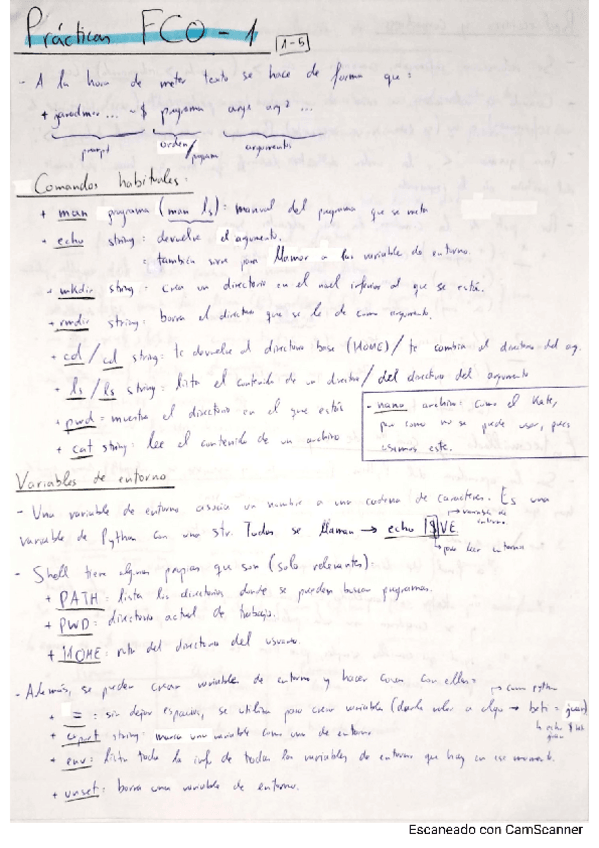 Prácticas FCO - 1 [1-5]
- A la hora de meter texto se hace de forma que:
+ ... ~ $ programa arg1 arg2 ...
prompt orden/programa argumentos
Comandos habituales:
+ man programa (man ls): manual del programa que se meta
+ echo string: devuelve el argumento.
= también sirve para llamar a las variable de entorno.
+ mkdir string: crea un directorio en el nivel inferior al que se está.
+ rmdir string: borra el directorio que se le de como argumento.
+ cd / cd string: te devuelve al directorio base (HOME) / te cambia al directorio del arg.
+ ls / ls string: lista el contenido de un directorio / del directorio del argumento
+ pwd = muestra el directorio en el que estás
+ cat string: lee el contenido de un archivo
- nano archivo: como el Kate,
pero como no se puede usar, pues
usamos este.
Variables de entorno
- Una variable de entorno asocia un nombre a una cadena de caracteres. Es una
variable de Python con una str. Todas se llaman → echo $VE
→ variable de entorno
→ para leer entorno
- Shell tiene algunas propias que son (solo relevantes):
+ PATH: lista los directorios donde se pueden buscar programas.
+ PWD: directorio actual de trabajo.
+ HOME: ruta del directorio del usuario.
- Además, se pueden crear variable de entorno y hacer cosas con ellas:
→ como python
+ = : sin dejar espacios, se utiliza para crear variable (darle valor a algo →
+ export string: marca una variable como una de entorno.
+ env: lista toda la inf. de todas las variables de entorno que hay en ese momento.
+ unset: borra una variable de entorno.
Escaneado con CamScanner